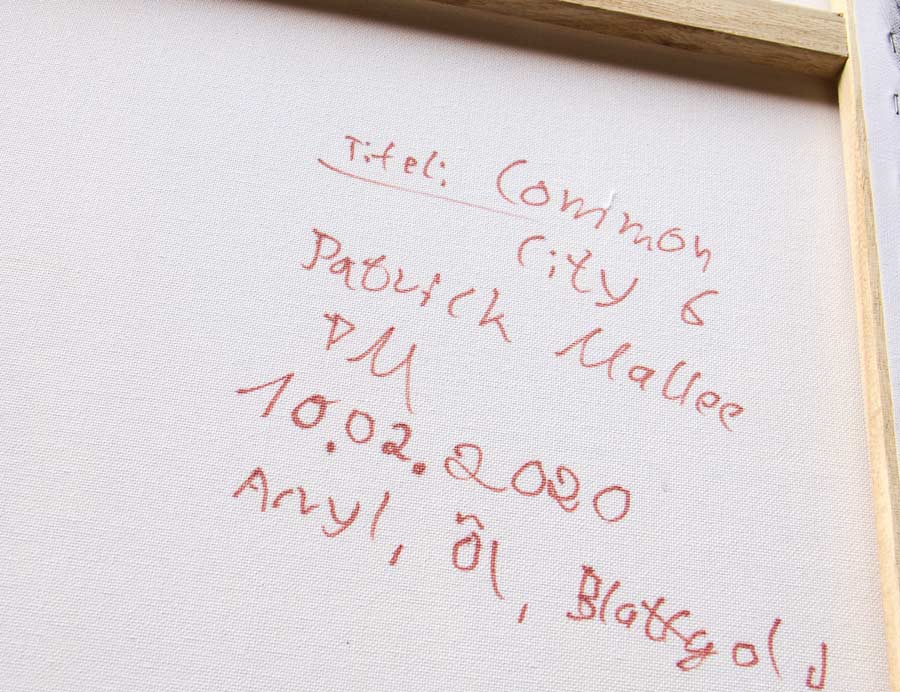 Titel: Common
City 6
Patrick Mallee
PM
10.02.2020
Acryl, Öl, Blattgold